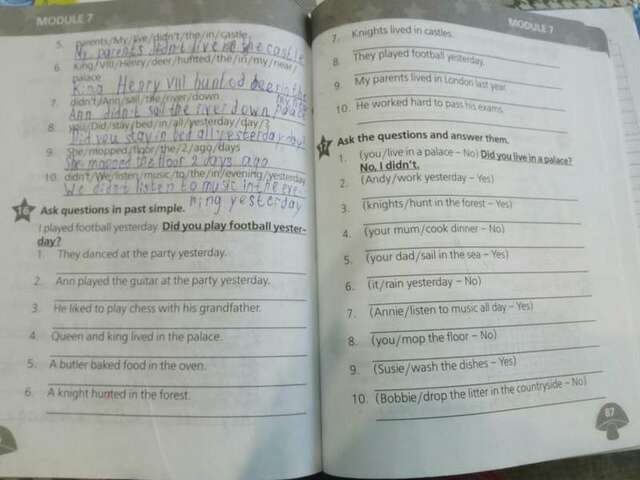 MODULE 7
5. Parents/My/live/didn't/the/in/castle
My parents didn't live in the castle
6. King/VIII/Henry/deer/hunted/the/in/my/near/
palace
King Henry VIII hunted deer in the
7. didn't/Ann/sail/the/river/down
Ann didn't sail the river down
8. you/Did/stay/bed/in/all/yesterday/day/?
Did you stay in bed all yesterday day?
9. She/mopped/floor/the/2/ago/days
She mopped the floor 2 days ago
10. didn't/We/listen/music/to/the/in/evening/yesterday
We didn't listen to music in the eve-
ning yesterday
16 Ask questions in past simple.
I played football yesterday. Did you play football yester-
day?
1. They danced at the party yesterday.
2. Ann played the guitar at the party yesterday.
3. He liked to play chess with his grandfather.
4. Queen and king lived in the palace.
5. A butler baked food in the oven.
6. A knight hunted in the forest.
MODULE 7
7. Knights lived in castles.
8. They played football yesterday.
9. My parents lived in London last year.
10. He worked hard to pass his exams.
17 Ask the questions and answer them.
1. (you/live in a palace – No) Did you live in a palace?
No, I didn't.
2. (Andy/work yesterday – Yes)
3. (knights/hunt in the forest – Yes)
4. (your mum/cook dinner – No)
5. (your dad/sail in the sea – Yes)
6. (it/rain yesterday – No)
7. (Annie/listen to music all day – Yes)
8. (you/mop the floor – No)
9. (Susie/wash the dishes – Yes)
10. (Bobbie/drop the litter in the countryside – No)
87